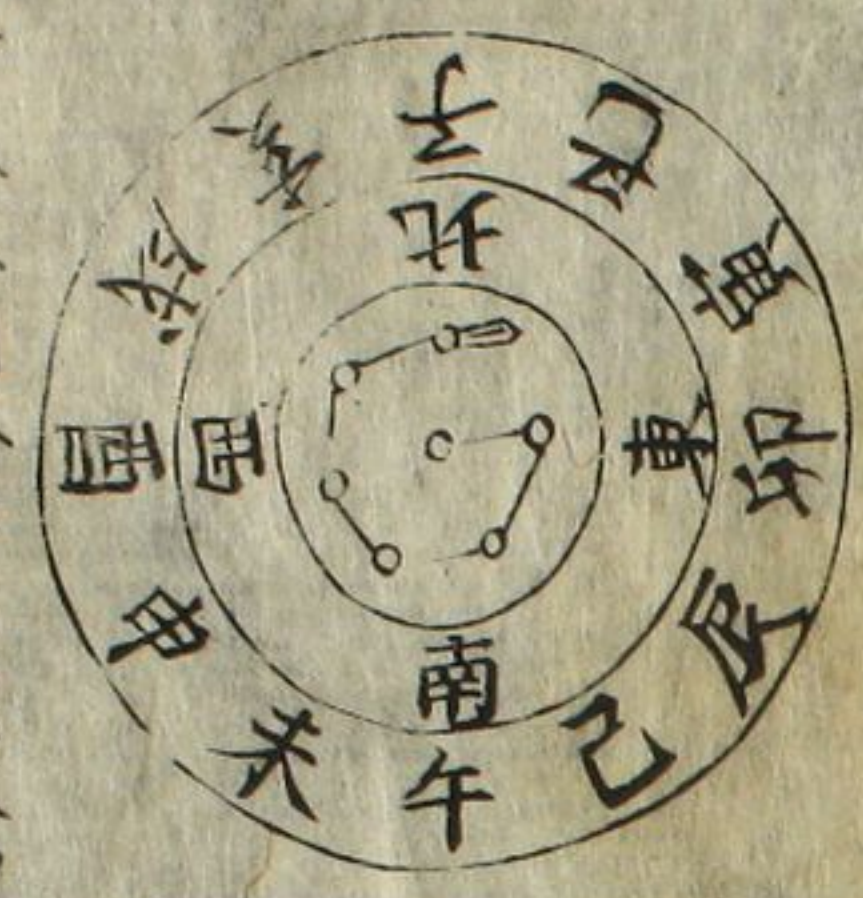 子丑寅卯辰己午未申酉戌亥
北東南西